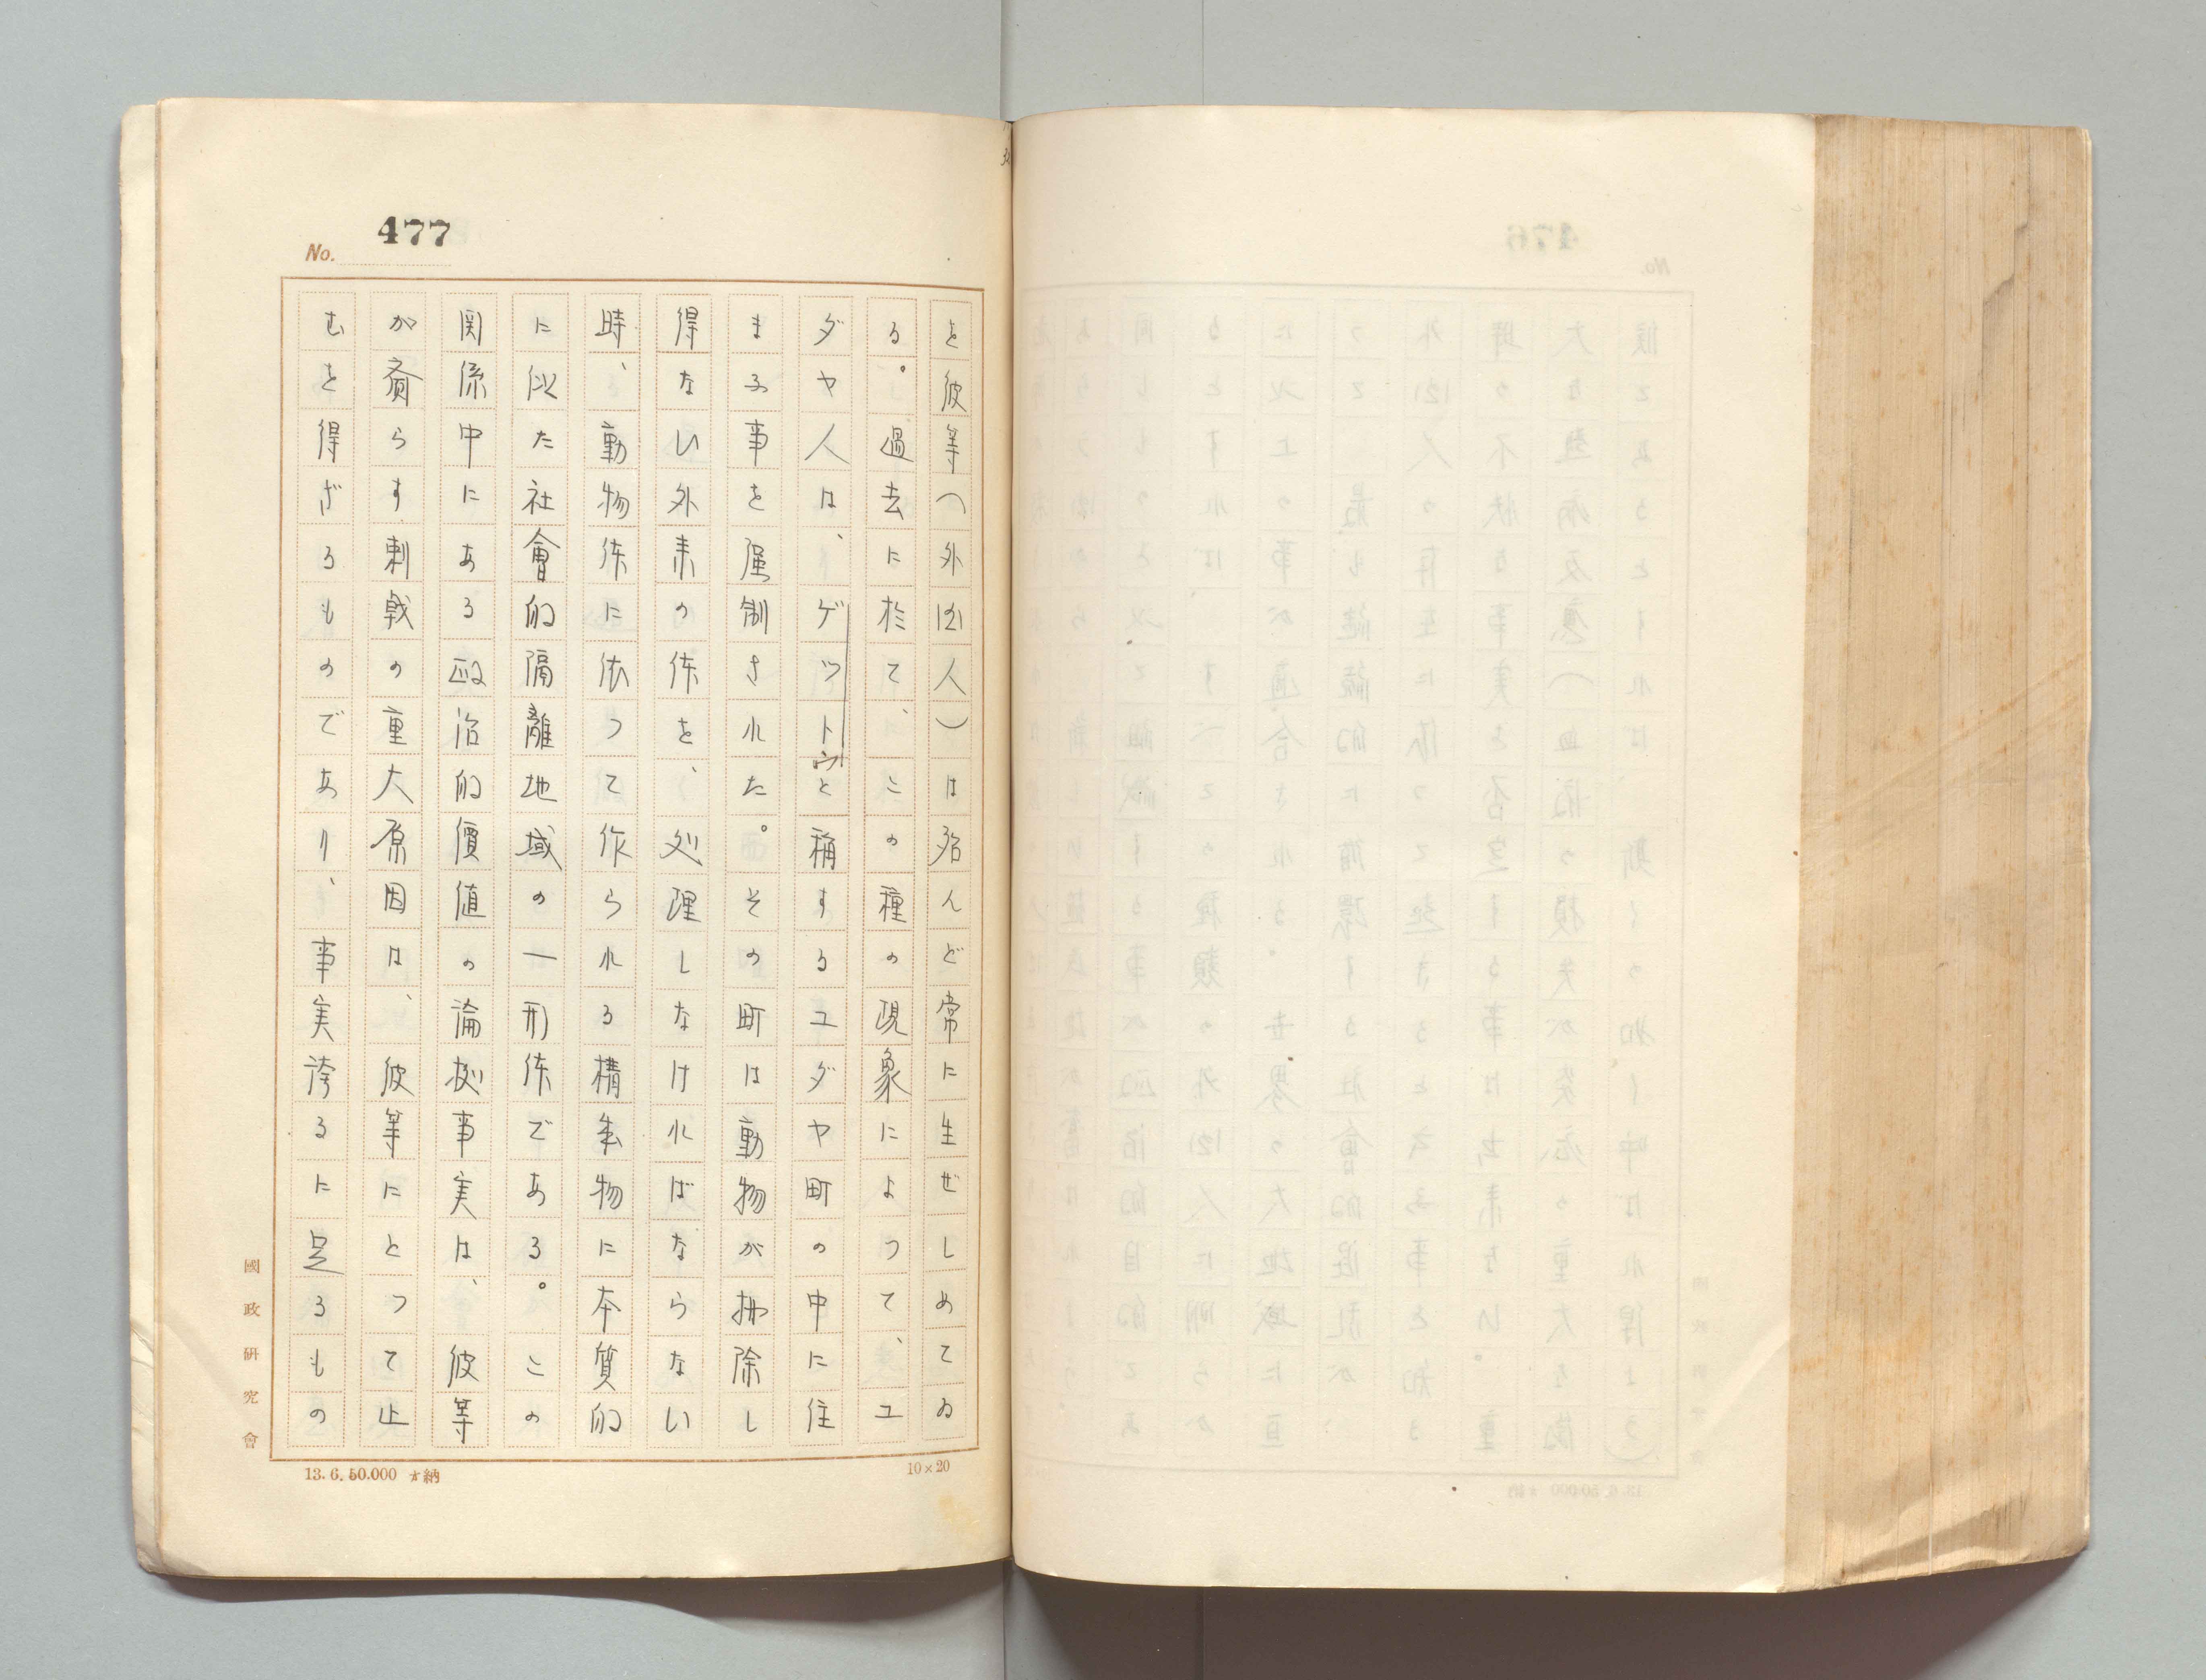 477
No.
を彼等(外国人)は殆んど常に生ぜしめてゐ
る。過去に於て、この種の現象によつて、ユ
ダヤ人は、ゲツトウと稱するユダヤ町の中に住
まふ事を强制された。その町は動物が排除し
得ない外来の体を、処理しなければならない
時、動物体に依つて作られる構造物に本質的
に似た社會的隔離地域の一形体である。この
関係中にある政治的價値の論拠事実は、彼等
が齎らす刺戟の重大原因は、彼等にとつて止
むを得ざるものであり、事実誇るに足るもの
國政研究會
13.6.50.000 納
10×20